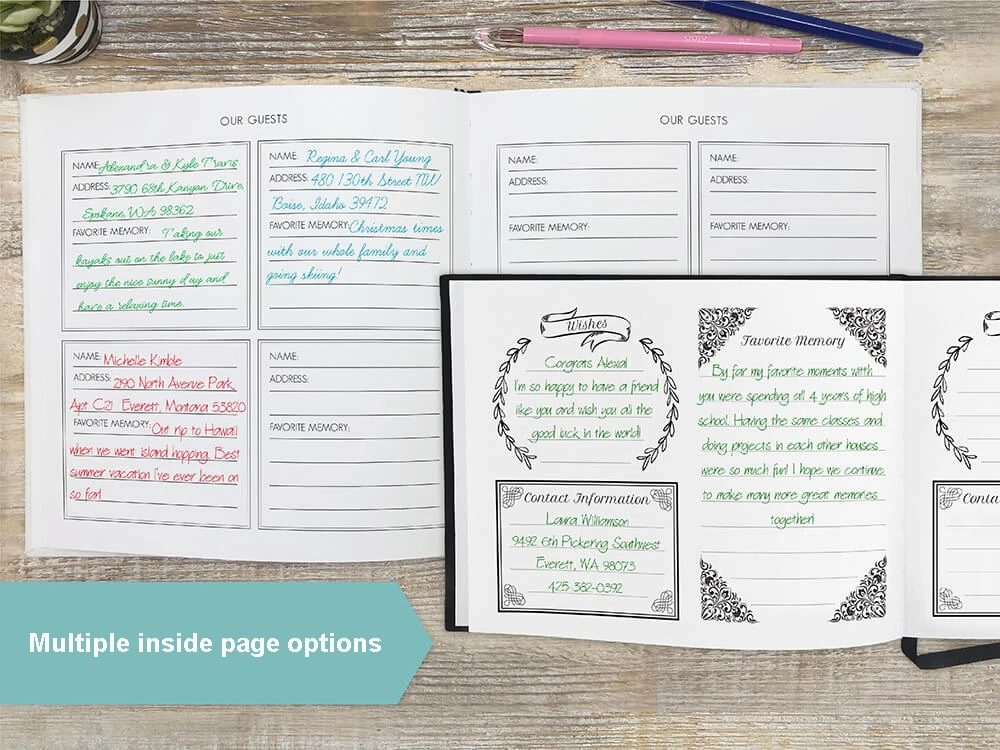 OUR GUESTS
NAME: Alexandra & Kyle Travis
ADDRESS: 3790 68th Kanyon Drive,
Spokane, WA 98362
FAVORITE MEMORY: Taking our
kayaks out on the lake to just
enjoy the nice sunny day and
have a relaxing time.
NAME: Regina & Carl Young
ADDRESS: 480 130th Street NW
Boise, Idaho 39472
FAVORITE MEMORY: Christmas times
with our whole family and
going skiing!
NAME: Michelle Kimble
ADDRESS: 2190 North Avenue Park,
Apt C21 Everett, Montana 53820
FAVORITE MEMORY: Our trip to Hawaii
when we went island hopping. Best
summer vacation I've ever been on
so far!
NAME:
ADDRESS:
FAVORITE MEMORY:
OUR GUESTS
NAME:
ADDRESS:
FAVORITE MEMORY:
NAME:
ADDRESS:
FAVORITE MEMORY:
Wishes
Congrats Alexa!
I'm so happy to have a friend
like you and wish you all the
good luck in the world!
Contact Information
Laura Williamson
9492 6th Pickering Southwest
Everett, WA 98073
425-382-0392
Favorite Memory
By far my favorite moments with
you were spending all 4 years of high
school. Having the same classes and
doing projects in each other houses
were so much fun! I hope we continue
to make many more great memories
together!
Conta
Multiple inside page options